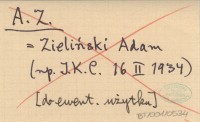 A. Z.
= Zieliński Adam
(np. I.K.C. 16 II 1934)
[do ewent. użytku]